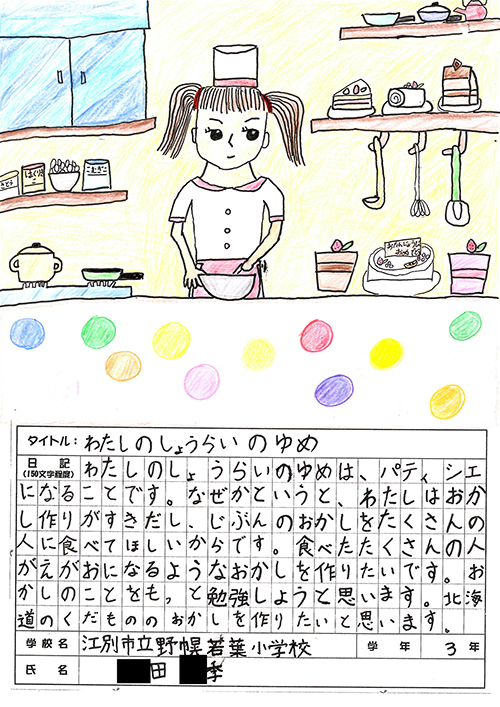 さとう
はくりきこ
こむぎこ
おたんじょうび
おめでとう
タイトル: わたしのしょうらいのゆめ
日記
(150文字程度)
わたしのしょうらいのゆめは、パティシエ
になることです。なぜかというと、わたしはおか
し作りがすきだし、じぶんのおかしをたくさんの
人に食べてほしいからです。食べたたくさんの人
がえがおになるようなおかしを作りたいです。お
かしのことをもっと勉強しようと思います。北海
道のくだもののおかしを作りたいと思います。
学校名 江別市立野幌若葉小学校 学年 3年
氏名 田 季